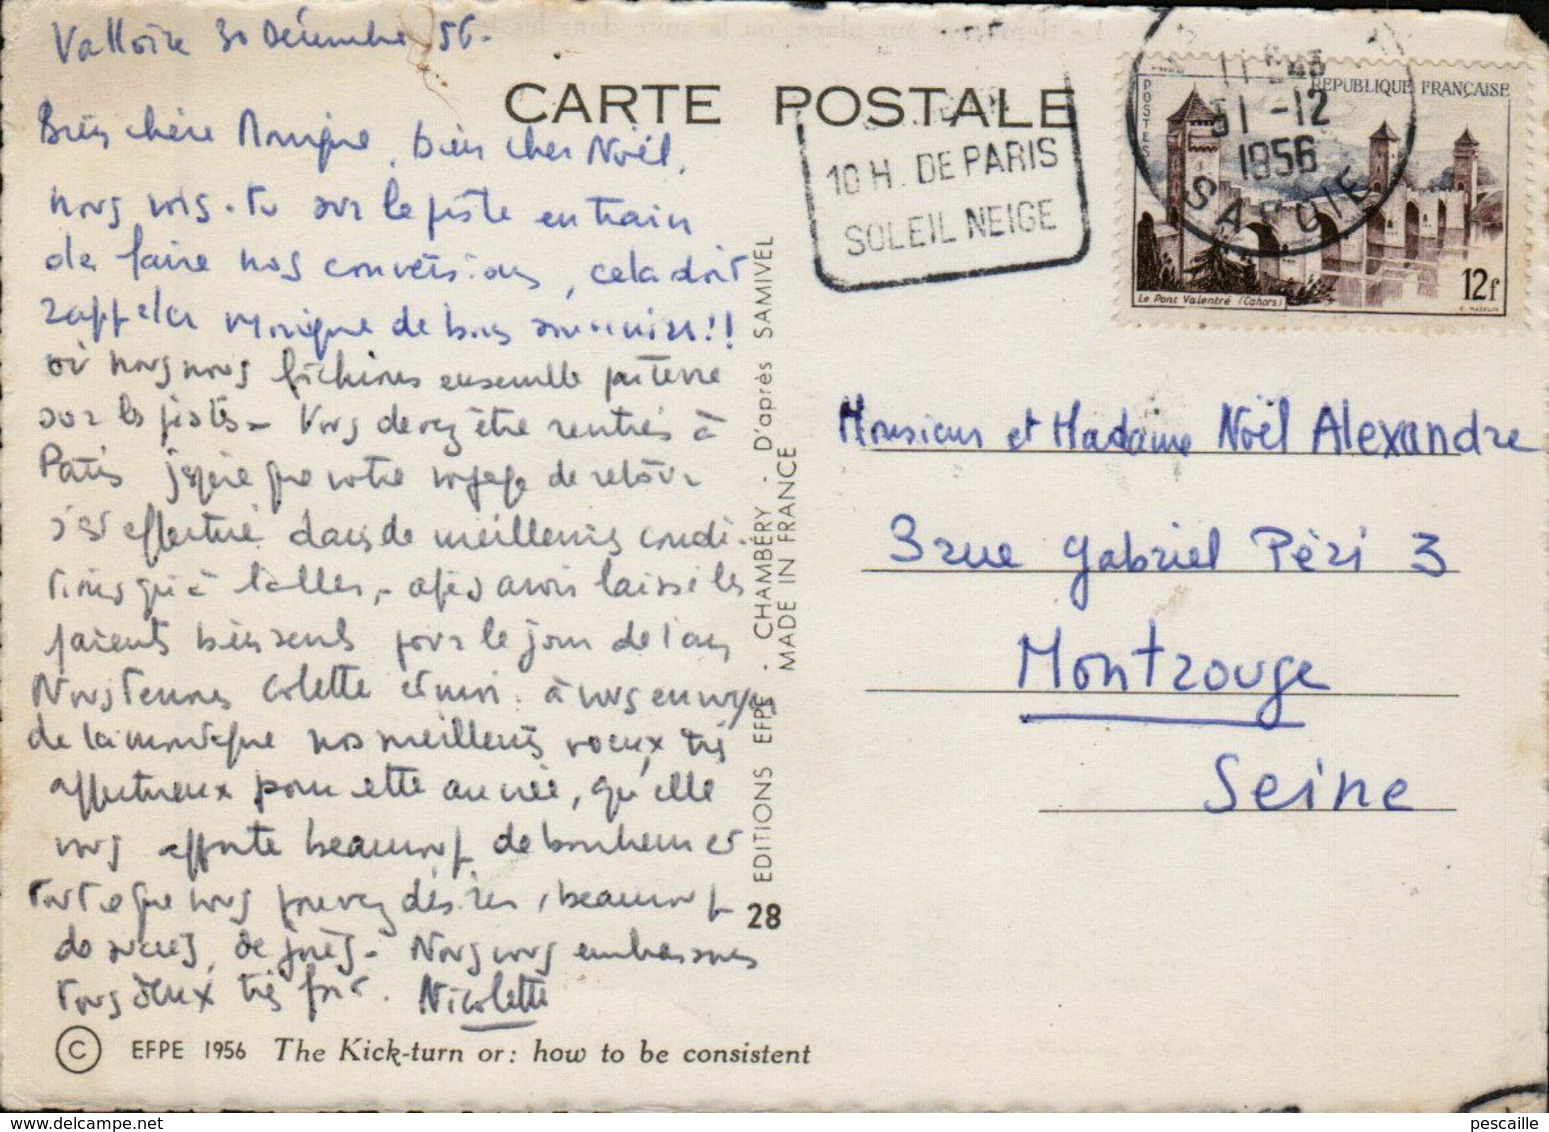 Valloire 30 Décembre 56.
CARTE POSTALE
Bien chère Monique, bien cher Noël,
nous vois-tu sur la piste en train
de faire nos conversions, cela doit
rappeler Monique de bons souvenirs!!
où nous nous fichions ensemble par terre
sur les pistes - Vous devez être rentrés à
Paris j'espère que votre voyage de retour
s'est effectué dans de meilleures condi-
tions qu'à l'aller, - après avoir laissé les
parents bien seuls pour le jour de l'an
Nous tenons Colette et moi à vous envoyer
de la montagne nos meilleurs voeux très
affectueux pour cette année, qu'elle
vous apporte beaucoup de bonheur et
tout ce que vous pouvez désirer, beaucoup
de succès, de joies - Nous vous embrassons
tous deux très fort. Nicolette
© EFPE 1956 The Kick-turn or: how to be consistent
28 EDITIONS EFPE - CHAMBÉRY - D'après SAMIVEL
MADE IN FRANCE
10 H. DE PARIS
SOLEIL NEIGE
31 -12
1956
SAVOIE
POSTES
REPUBLIQUE FRANÇAISE
Le Pont Valentré (Cahors)
12f
Monsieur et Madame Noël Alexandre
3 rue Gabriel Péri 3
Montrouge
Seine
pescaille